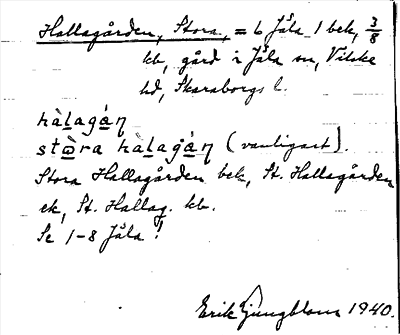 Hallagården, Stora, = 6 Jäla 1 bek, 3/8
kb, gård i Jäla sn, Vilske
hd, Skaraborgs l.
hàlagán
stòra hàlagán (vanligast).
Stora Hallagården bek, St. Hallagården
ek, St. Hallag. kb.
Se 1-8 Jäla!
Erik Ljungblom 1940.